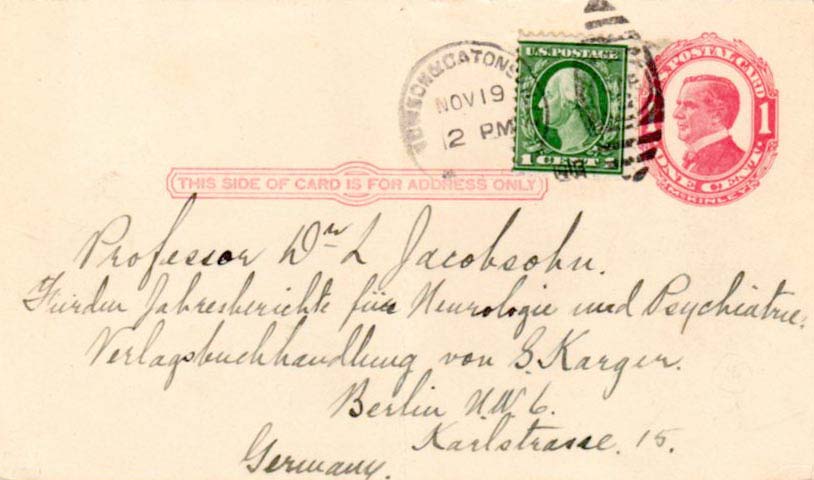 U.S. POSTAGE
1 CENT 1
NOV 19
2 PM
U.S. POSTAL CARD
1
ONE CENT
McKINLEY
THIS SIDE OF CARD IS FOR ADDRESS ONLY
Professor Dr L Jacobsohn.
Für den Jahresberichte für Neurologie und Psychiatrie.
Verlagsbuchhandlung von S. Karger.
Berlin N.W. 6.
Karlstrasse. 15.
Germany.